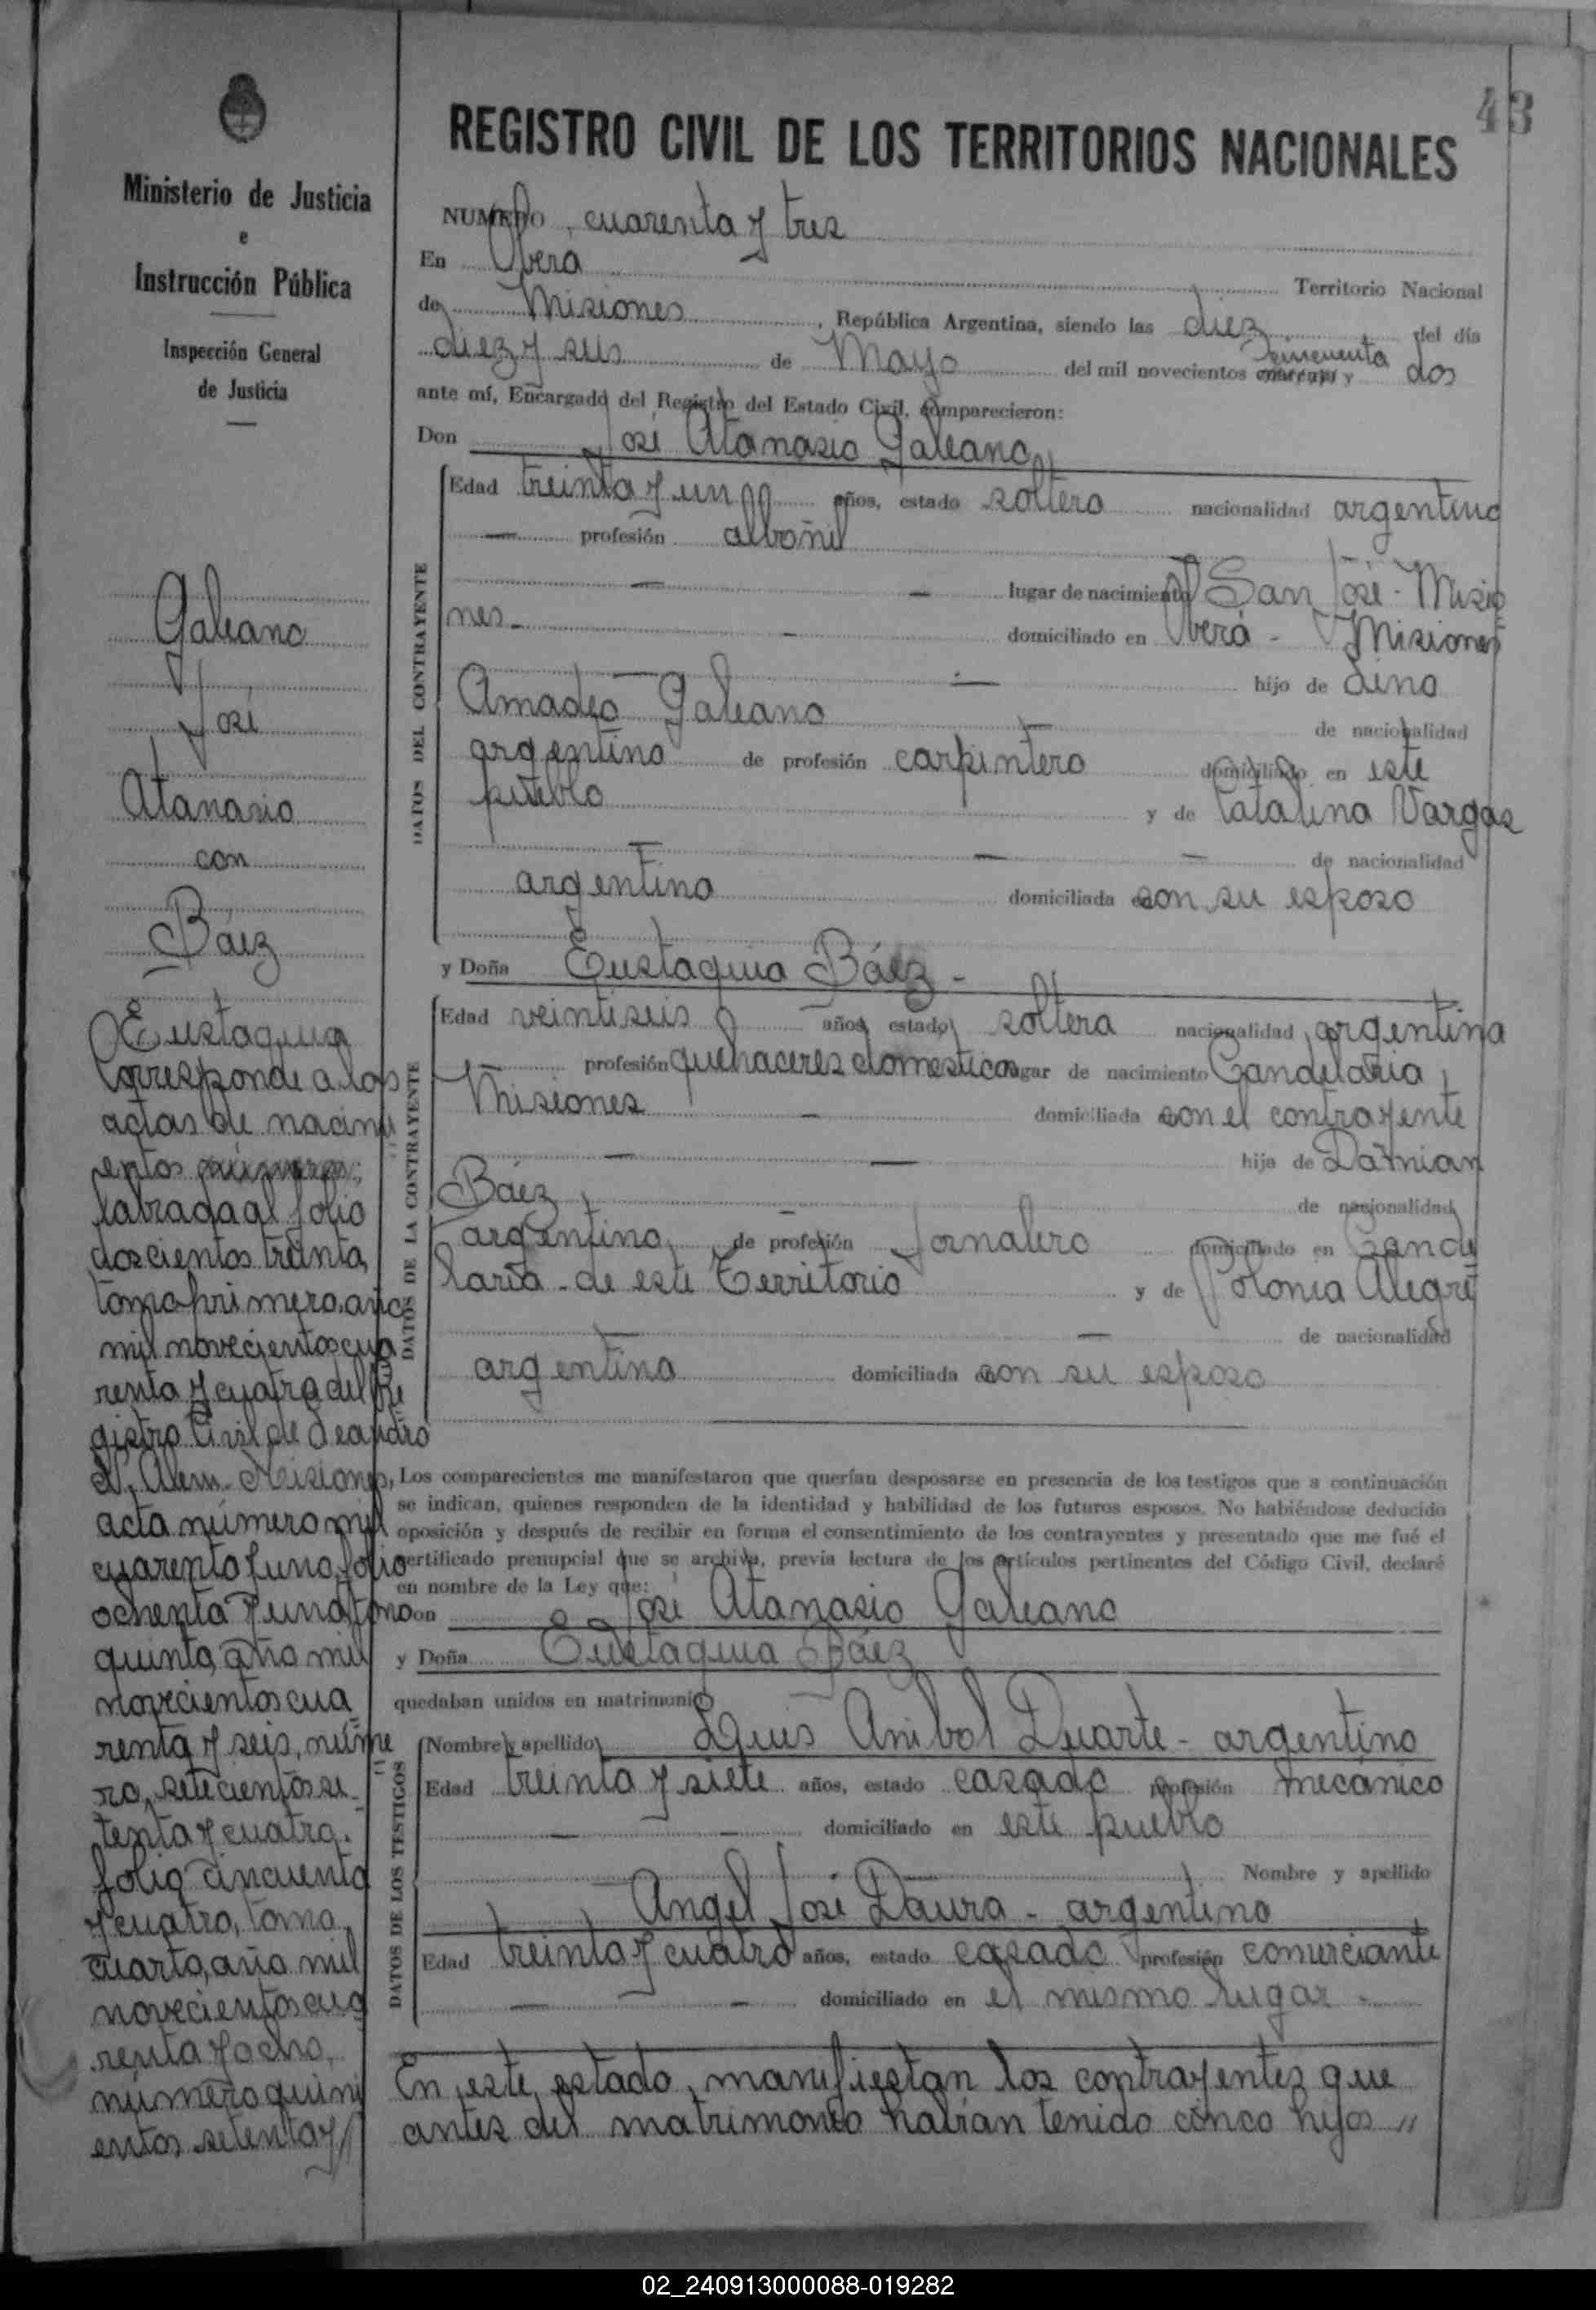 43
REGISTRO CIVIL DE LOS TERRITORIOS NACIONALES
Ministerio de Justicia
e
Instrucción Pública
Inspección General
de Justicia
Galeano
José
Atanasio
con
Báez
Eustaquia
Corresponde a las
actas de nacimi
entos
labrada al folio
doscientos treinta,
tomo primero, año
mil novecientos cua
renta y cuatro del Re
gistro Civil de Leandro
N. Alem - Misiones,
acta número mil
cuarenta y uno, folio
ochenta y uno, tomo
quinto, año mil
novecientos cua
renta y seis, núme
ro, setecientos se
tenta y cuatro.
folio cincuenta
y cuatro, tomo
cuarto, año mil
novecientos cua
renta y ocho,
número quini
entos setenta y //
NUMERO cuarenta y tres
En Oberá Territorio Nacional
de Misiones, República Argentina, siendo las diez del día
diez y seis de Mayo del mil novecientos cincuenta y dos
ante mí, Encargado del Registro del Estado Civil, comparecieron:
Don José Atanasio Galeano
DATOS DEL CONTRAYENTE
Edad treinta y un años, estado soltero nacionalidad argentino
— profesión albañil
— — lugar de nacimiento San José - Misio
nes - - domiciliado en Oberá - Misiones
— hijo de Lino
Amadeo Galeano — de nacionalidad
argentino de profesión carpintero domiciliado en este
pueblo y de Catalina Vargas
— — — de nacionalidad
argentina domiciliada con su esposo
y Doña Eustaquia Báez -
DATOS DE LA CONTRAYENTE
Edad veintiseis años, estado soltera nacionalidad argentina
— profesión quehaceres domesticos lugar de nacimiento Candelaria
Misiones — domiciliada con el contrayente
— — hija de Damian
Báez - de nacionalidad
argentino de profesión Jornalero domiciliado en Cande
laria - de este Territorio y de Polonia Alegre
— — de nacionalidad
argentina domiciliada con su esposo
Los comparecientes me manifestaron que querían desposarse en presencia de los testigos que a continuación
se indican, quienes responden de la identidad y habilidad de los futuros esposos. No habiéndose deducido
oposición y después de recibir en forma el consentimiento de los contrayentes y presentado que me fué el
certificado prenupcial que se archiva, previa lectura de los artículos pertinentes del Código Civil, declaré
en nombre de la Ley que:
Don José Atanasio Galeano
y Doña Eustaquia Báez
quedaban unidos en matrimonio
DATOS DE LOS TESTIGOS
Nombre y apellido Luis Anibal Duarte - argentino
Edad treinta y siete años, estado casado profesión mecánico
— — domiciliado en este pueblo
Nombre y apellido
Angel José Daura - argentino
Edad treinta y cuatro años, estado casado profesión comerciante
— — domiciliado en el mismo lugar -
En este estado, manifiestan los contrayentes que
antes del matrimonio habían tenido cinco hijos //
02_240913000088-019282